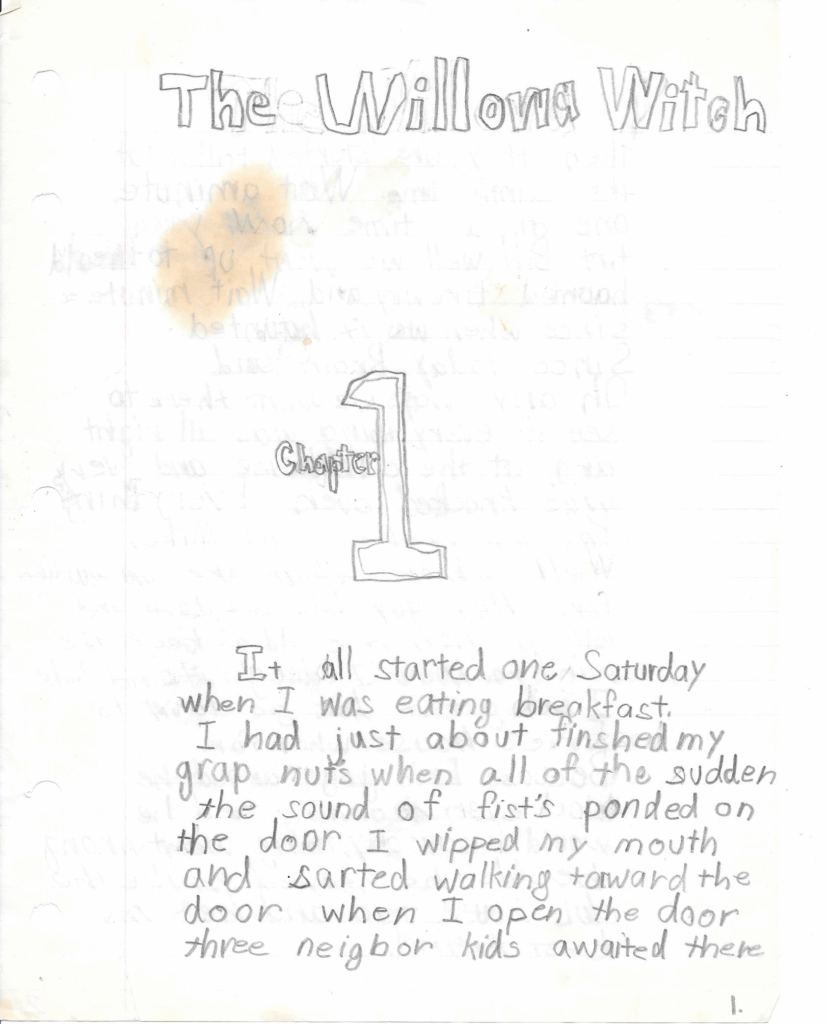 The Willowa Witch
Chapter
1
It all started one Saturday
when I was eating breakfast.
I had just about finshed my
grap nuts when all of the sudden
the sound of fist's ponded on
the door I wipped my mouth
and sarted walking toward the
door when I open the door
three neigbor kids awaited there
1.